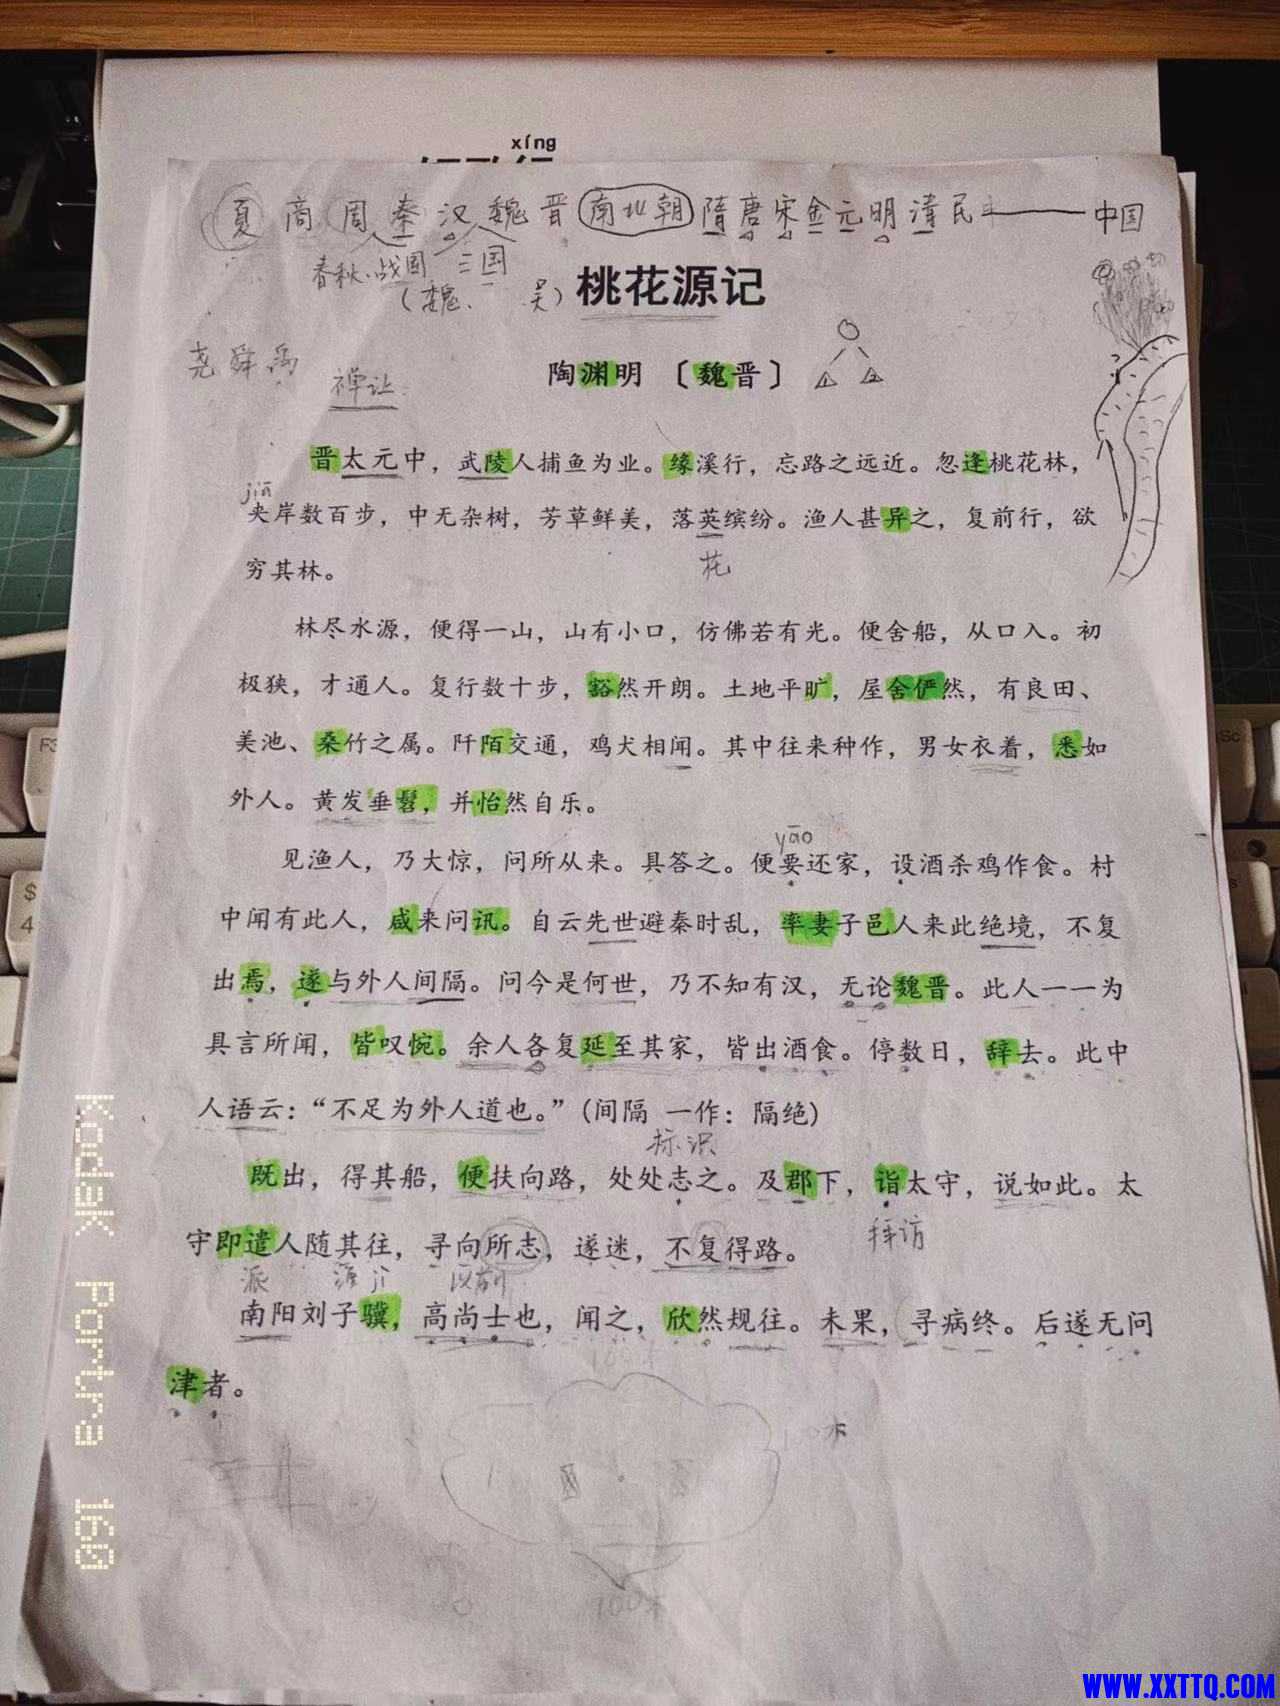 xíng
夏 商 周 秦 汉 魏 晋 南北朝 隋 唐 宋 金 元 明 清 民 中国
春秋、战国 三国
(魏、 吴)
桃花源记
尧 舜 禹
禅让
陶渊明 〔魏晋〕
晋太元中，武陵人捕鱼为业。缘溪行，忘路之远近。忽逢桃花林，
jiā
夹岸数百步，中无杂树，芳草鲜美，落英缤纷。渔人甚异之，复前行，欲
花
穷其林。
林尽水源，便得一山，山有小口，仿佛若有光。便舍船，从口入。初
极狭，才通人。复行数十步，豁然开朗。土地平旷，屋舍俨然，有良田、
美池、桑竹之属。阡陌交通，鸡犬相闻。其中往来种作，男女衣着，悉如
外人。黄发垂髫，并怡然自乐。
yāo
见渔人，乃大惊，问所从来。具答之。便要还家，设酒杀鸡作食。村
中闻有此人，咸来问讯。自云先世避秦时乱，率妻子邑人来此绝境，不复
出焉，遂与外人间隔。问今是何世，乃不知有汉，无论魏晋。此人一一为
具言所闻，皆叹惋。余人各复延至其家，皆出酒食。停数日，辞去。此中
人语云：“不足为外人道也。”(间隔 一作：隔绝)
标识
既出，得其船，便扶向路，处处志之。及郡下，诣太守，说如此。太
拜访
守即遣人随其往，寻向所志，遂迷，不复得路。
派 以前
南阳刘子骥，高尚士也，闻之，欣然规往。未果，寻病终。后遂无问
津者。
100米
Kodak Portra 160
WWW.XXTTQ.COM